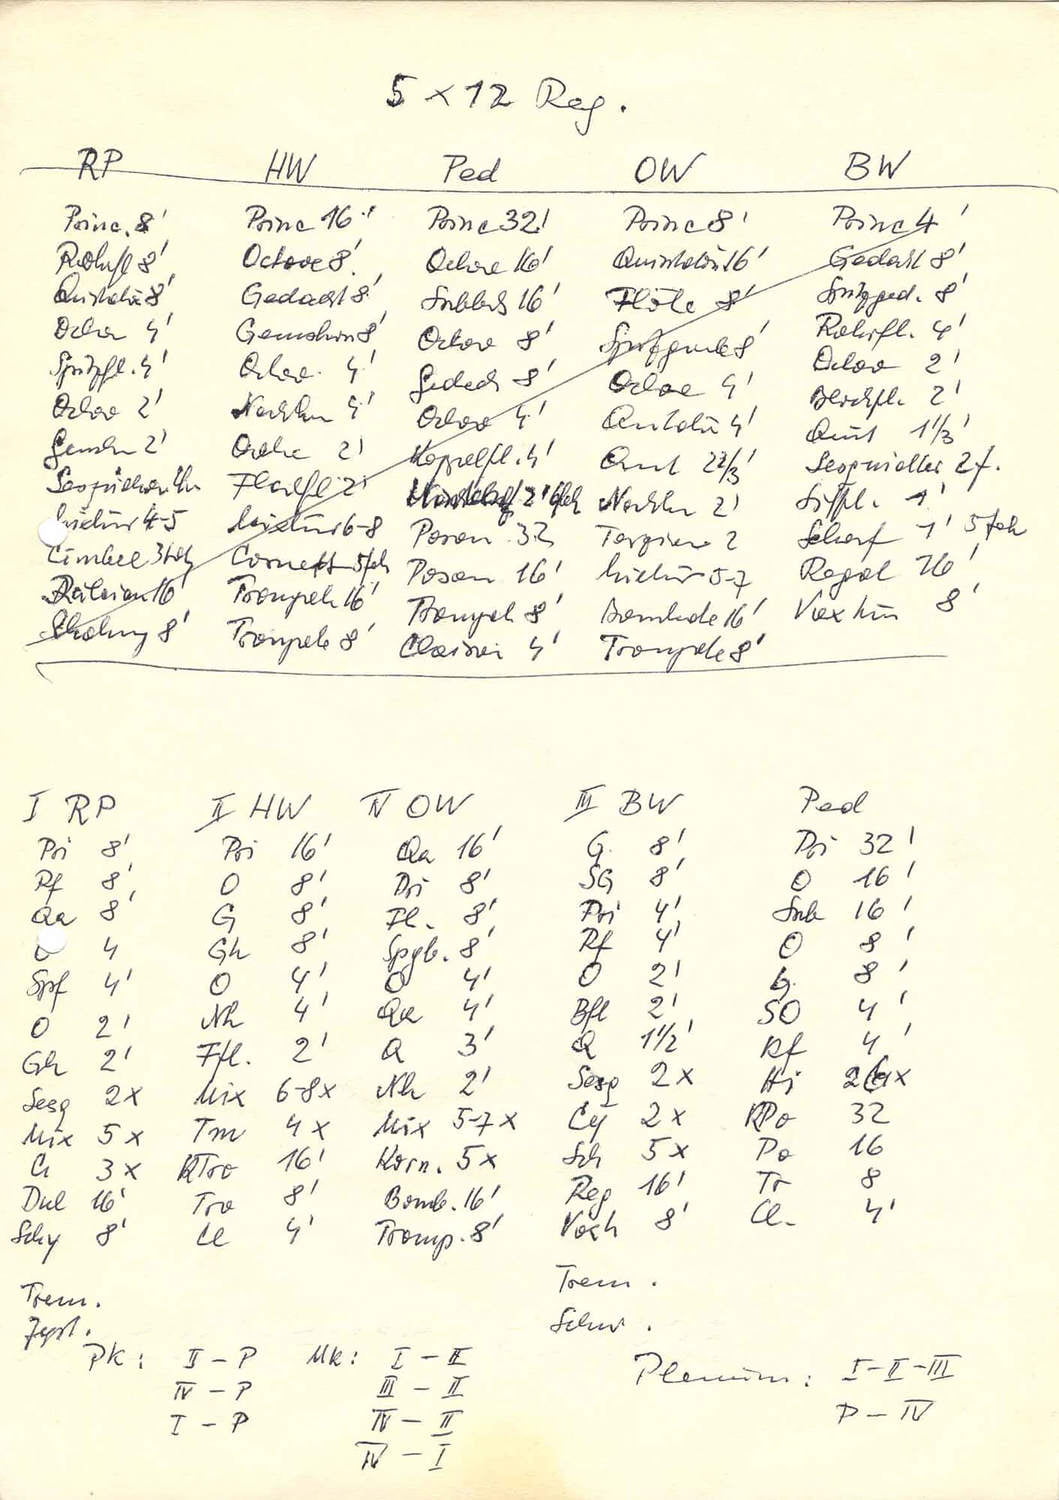 5 × 12 Reg.
RP HW Ped OW BW
Princ. 8' Princ 16' Princ 32' Princ 8' Princ 4'
Rohrfl 8' Octave 8' Octave 16' Quintatön 16' Gedackt 8'
Quintatön 8' Gedackt 8' Subbaß 16' Flöte 8' Spitzged. 8'
Octav 4' Gemshorn 8' Octav 8' 8' Rohrfl. 4'
Spitzfl. 4' Octav 4' Gedack 8' Octave 4' Octav 2'
Octav 2' Nachthn 4' Octav 4' Quintatön 4' Blockfl. 2'
Gemshn 2' Octave 2' Koppelfl. 4' Quint 2 2/3' Quint 1 1/3'
Flachfl 2' Nachthn 2' Sesquialter 2f.
Mixtur 4-5 Mixtur 6-8 Posan 32 Siffl. 1'
Cimbel 3fch Cornett 5fch Posan 16' Mixtur 5-7 Scharf 1' 5fch
16' Trompete 16' Trompete 8' Bombarde 16' Regal 16'
8' Trompete 8' Clairon 4' Trompete 8' Vox hum 8'
I RP II HW IV OW III BW Ped
Pri 8' Pri 16' Qa 16' G. 8' Pri 32'
Rf 8' O 8' Pri 8' SG 8' O 16'
Qa 8' G 8' Fl. 8' Pri 4' Sub 16'
4 Gh 8' Spgb. 8' Rf 4' O 8'
Spf 4' O 4' O 4' O 2' G. 8'
O 2' Nh 4' Qa 4' Bfl 2' SO 4'
Gh 2' Ffl. 2' Q 3' Q 1 1/2' Rf 4'
Sesq 2x Mix 6-8x Nh 2' Sesq 2x Hi
Mix 5x Tm 4x Mix 5-7x Cy 2x Po 32
Ci 3x Tro 16' Korn. 5x Sch 5x Po 16
Dul 16' Tro 8' Bomb. 16' Reg 16' Tr 8
Schy 8' Cl 4' Tromp. 8' Voxh 8' Cl. 4'
Trem. Trem.
Zyst. Schw.
PK: II – P MK: I – II Plenum: I–II–III
IV – P III – II P – IV
I – P IV – II
IV – I